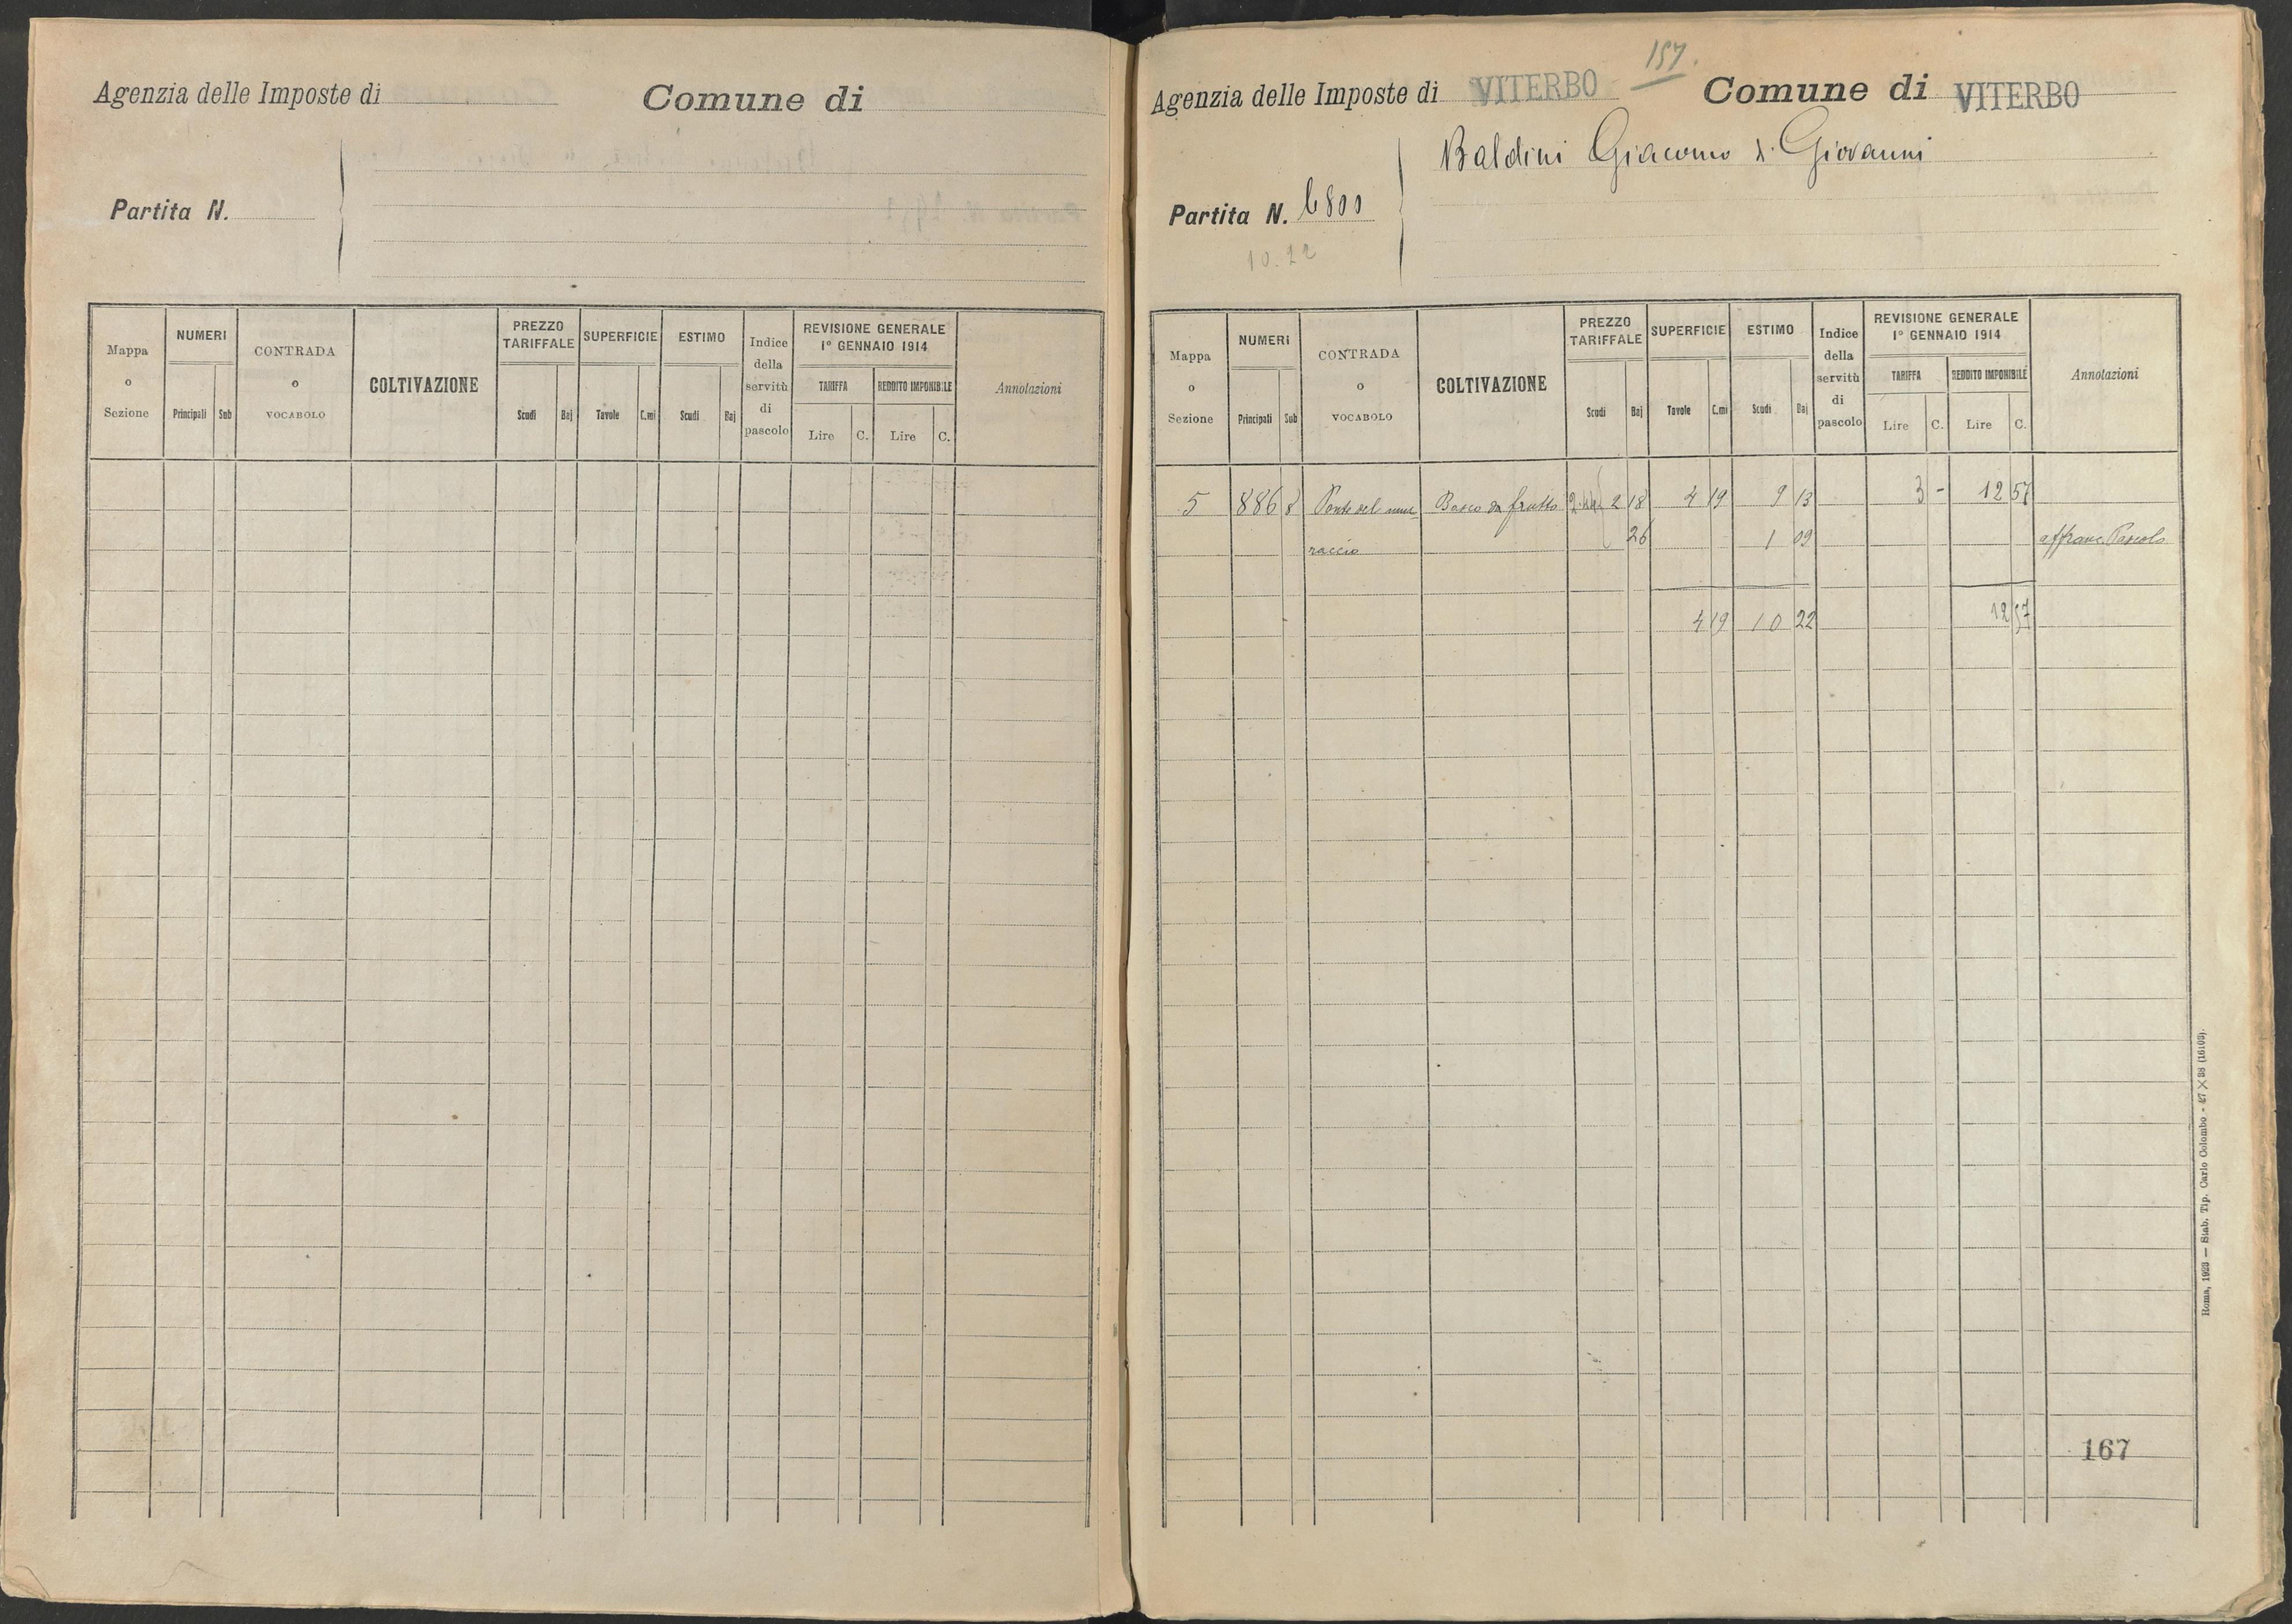 Agenzia delle Imposte di
Comune di
Partita N.
Mappa o Sezione
NUMERI
Principali Sub
CONTRADA o VOCABOLO
COLTIVAZIONE
PREZZO TARIFFALE
Scudi Baj
SUPERFICIE
Tavole C.mi
ESTIMO
Scudi Baj
Indice della servitù di pascolo
REVISIONE GENERALE
1° GENNAIO 1914
TARIFFA REDDITO IMPONIBILE
Lire C. Lire C.
Annotazioni
157.
Agenzia delle Imposte di VITERBO Comune di VITERBO
Baldini Giacomo di Giovanni
Partita N. 6800
10.22
Mappa o Sezione
NUMERI
Principali Sub
CONTRADA o VOCABOLO
COLTIVAZIONE
PREZZO TARIFFALE
Scudi Baj
SUPERFICIE
Tavole C.mi
ESTIMO
Scudi Baj
Indice della servitù di pascolo
REVISIONE GENERALE
1° GENNAIO 1914
TARIFFA REDDITO IMPONIBILE
Lire C. Lire C.
Annotazioni
5 886 8 Ponte del Bosco da frutto 2 18 4 19 9 13 3 - 12 57
raccio 26 1 09 affranc. Pascolo
4 19 10 22 12 57
167
Roma, 1923 — Stab. Tip. Carlo Colombo - 47 × 38 (16103).